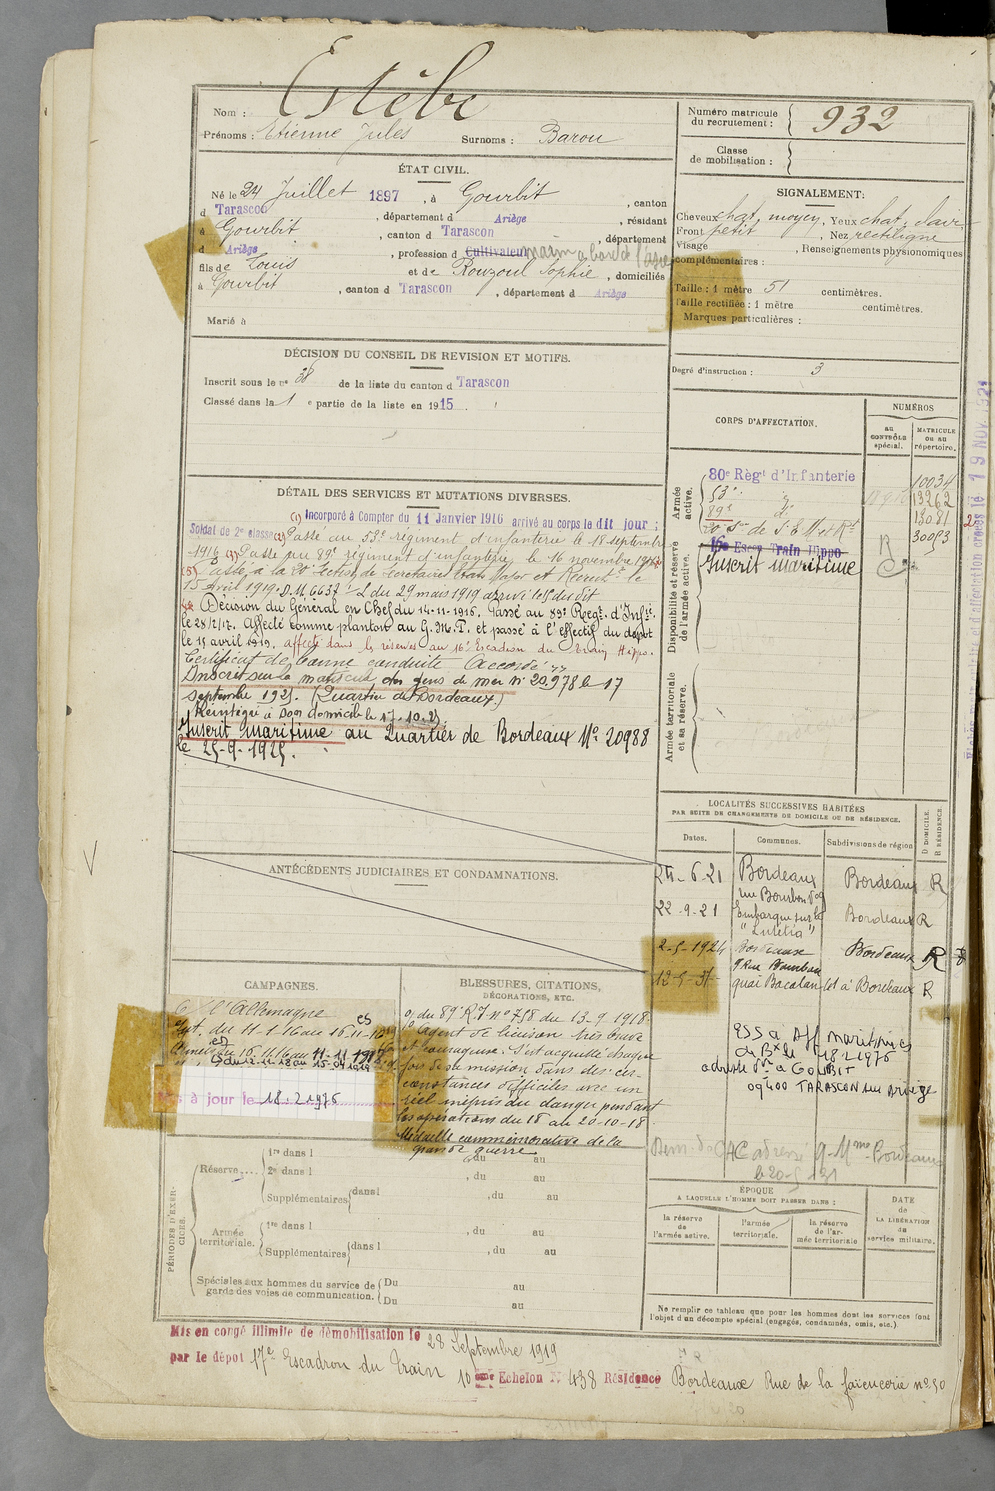 Nom : Estèbe
Prénoms : Etienne Jules Surnoms : Barou
Numéro matricule du recrutement : 932
Classe de mobilisation :
ÉTAT CIVIL.
Né le 24 Juillet 1897, à Gourbit, canton
d Tarascon, département d Ariège, résidant
à Gourbit, canton d Tarascon, département
d Ariège, profession d Cultivateur marin à bord de
fils de Louis et de Rouzoul Sophie, domiciliés
à Gourbit, canton d Tarascon, département d Ariège
Marié à
SIGNALEMENT:
Cheveux chat. moyen, Yeux chat. clair
Front petit, Nez rectiligne
Visage , Renseignements physionomiques
complémentaires :
Taille : 1 mètre 51 centimètres.
Taille rectifiée : 1 mètre centimètres.
Marques particulières :
Degré d'instruction : 3
DÉCISION DU CONSEIL DE REVISION ET MOTIFS.
Inscrit sous le n° 38 de la liste du canton d Tarascon
Classé dans la 1 e partie de la liste en 1915.
CORPS D'AFFECTATION.
NUMÉROS
au CONTRÔLE spécial.
MATRICULE ou au répertoire.
Armée active.
80e Régt d'Infanterie 10034
53e d° 13262
89e d° 13081
20e Son de S. E. M et Rt 30093
Disponibilité et réserve de l'armée active.
16e Escon Train Hippo
Inscrit maritime
Armée territoriale et sa réserve.
DÉTAIL DES SERVICES ET MUTATIONS DIVERSES.
(1) Incorporé à Compter du 11 Janvier 1916 arrivé au corps le dit jour ;
Soldat de 2e classe (2) Passé au 53e régiment d'infanterie le 18 septembre
1916 (3) Passé au 89e régiment d'infanterie le 16 novembre 1916
(5) Passé à la 20e Section de Secrétaires Etat Major et Recrutt le
15 Avril 1919. D.M. 6637 - 2 du 29 mars 1919 arrivé le dit
Décision du Général en Chef du 14-11-1916. Passé au 89e Regt. d'Infie.
le 28/2/17. Affecté comme planton au G.M.P. et passé à l'effectif du dépôt
le 15 avril 1919. affecté dans les réserves au 16e Escadron du Train Hippo.
Certificat de bonne conduite "Accordé"
Inscrit sur la matricule des gens de mer n° 20978 le 17
septembre 1921. (Quartier de Bordeaux.)
Réintégré à son domicile le 17-10-21
Inscrit maritime au Quartier de Bordeaux No 20988
le 25-9-1925.
ANTÉCÉDENTS JUDICIAIRES ET CONDAMNATIONS.
LOCALITÉS SUCCESSIVES HABITÉES
PAR SUITE DE CHANGEMENTS DE DOMICILE OU DE RÉSIDENCE.
Dates. Communes. Subdivisions de région D DOMICILE. R RÉSIDENCE.
24-6-21 Bordeaux Bordeaux R
rue Bourbon
22-9-21 Embarqué sur le Bordeaux R
"Lutetia"
2-5-1924 Bordeaux Bordeaux R
9 Rue Bourbon
12-5-37 quai Bacalan Bordeaux R
adresse à GOURBIT
09400 TARASCON sur Ariège
CAMPAGNES.
C. l'Allemagne
Int. du 11-1-16 au 15-11-16
du 16.11.16 au 11-11-1918
du 12-11-18 au 15-04-1919
à jour le 18.2.1976
BLESSURES, CITATIONS, DÉCORATIONS, ETC.
O/ du 89e R.I n° 758 du 13-9-1918.
"Agent de liaison très brave
et courageux. S'est acquitté chaque
fois de sa mission dans des cir-
constances difficiles avec un
réel mépris du danger pendant
les opérations du 18 au 20-10-18"
Médaille commémorative de la
grande guerre
PÉRIODES D'EXERCICES.
Réserve..... 1re dans l , du au
2e dans l , du au
Supplémentaires dans l , du au
Armée territoriale. 1re dans l , du au
Supplémentaires dans l , du au
Spéciales aux hommes du service de garde des voies de communication. Du au
Du au
ÉPOQUE
A LAQUELLE L'HOMME DOIT PASSER DANS :
la réserve de l'armée active.
l'armée territoriale.
la réserve de l'armée territoriale
DATE de LA LIBÉRATION du service militaire.
Ne remplir ce tableau que pour les hommes dont les services font
l'objet d'un décompte spécial (engagés, condamnés, omis, etc.)
Mis en congé illimité de démobilisation le 28 Septembre 1919
par le dépôt 17e Escadron du Train 10 ème Echelon N° 438 Résidence Bordeaux Rue de la faïencerie n° 50